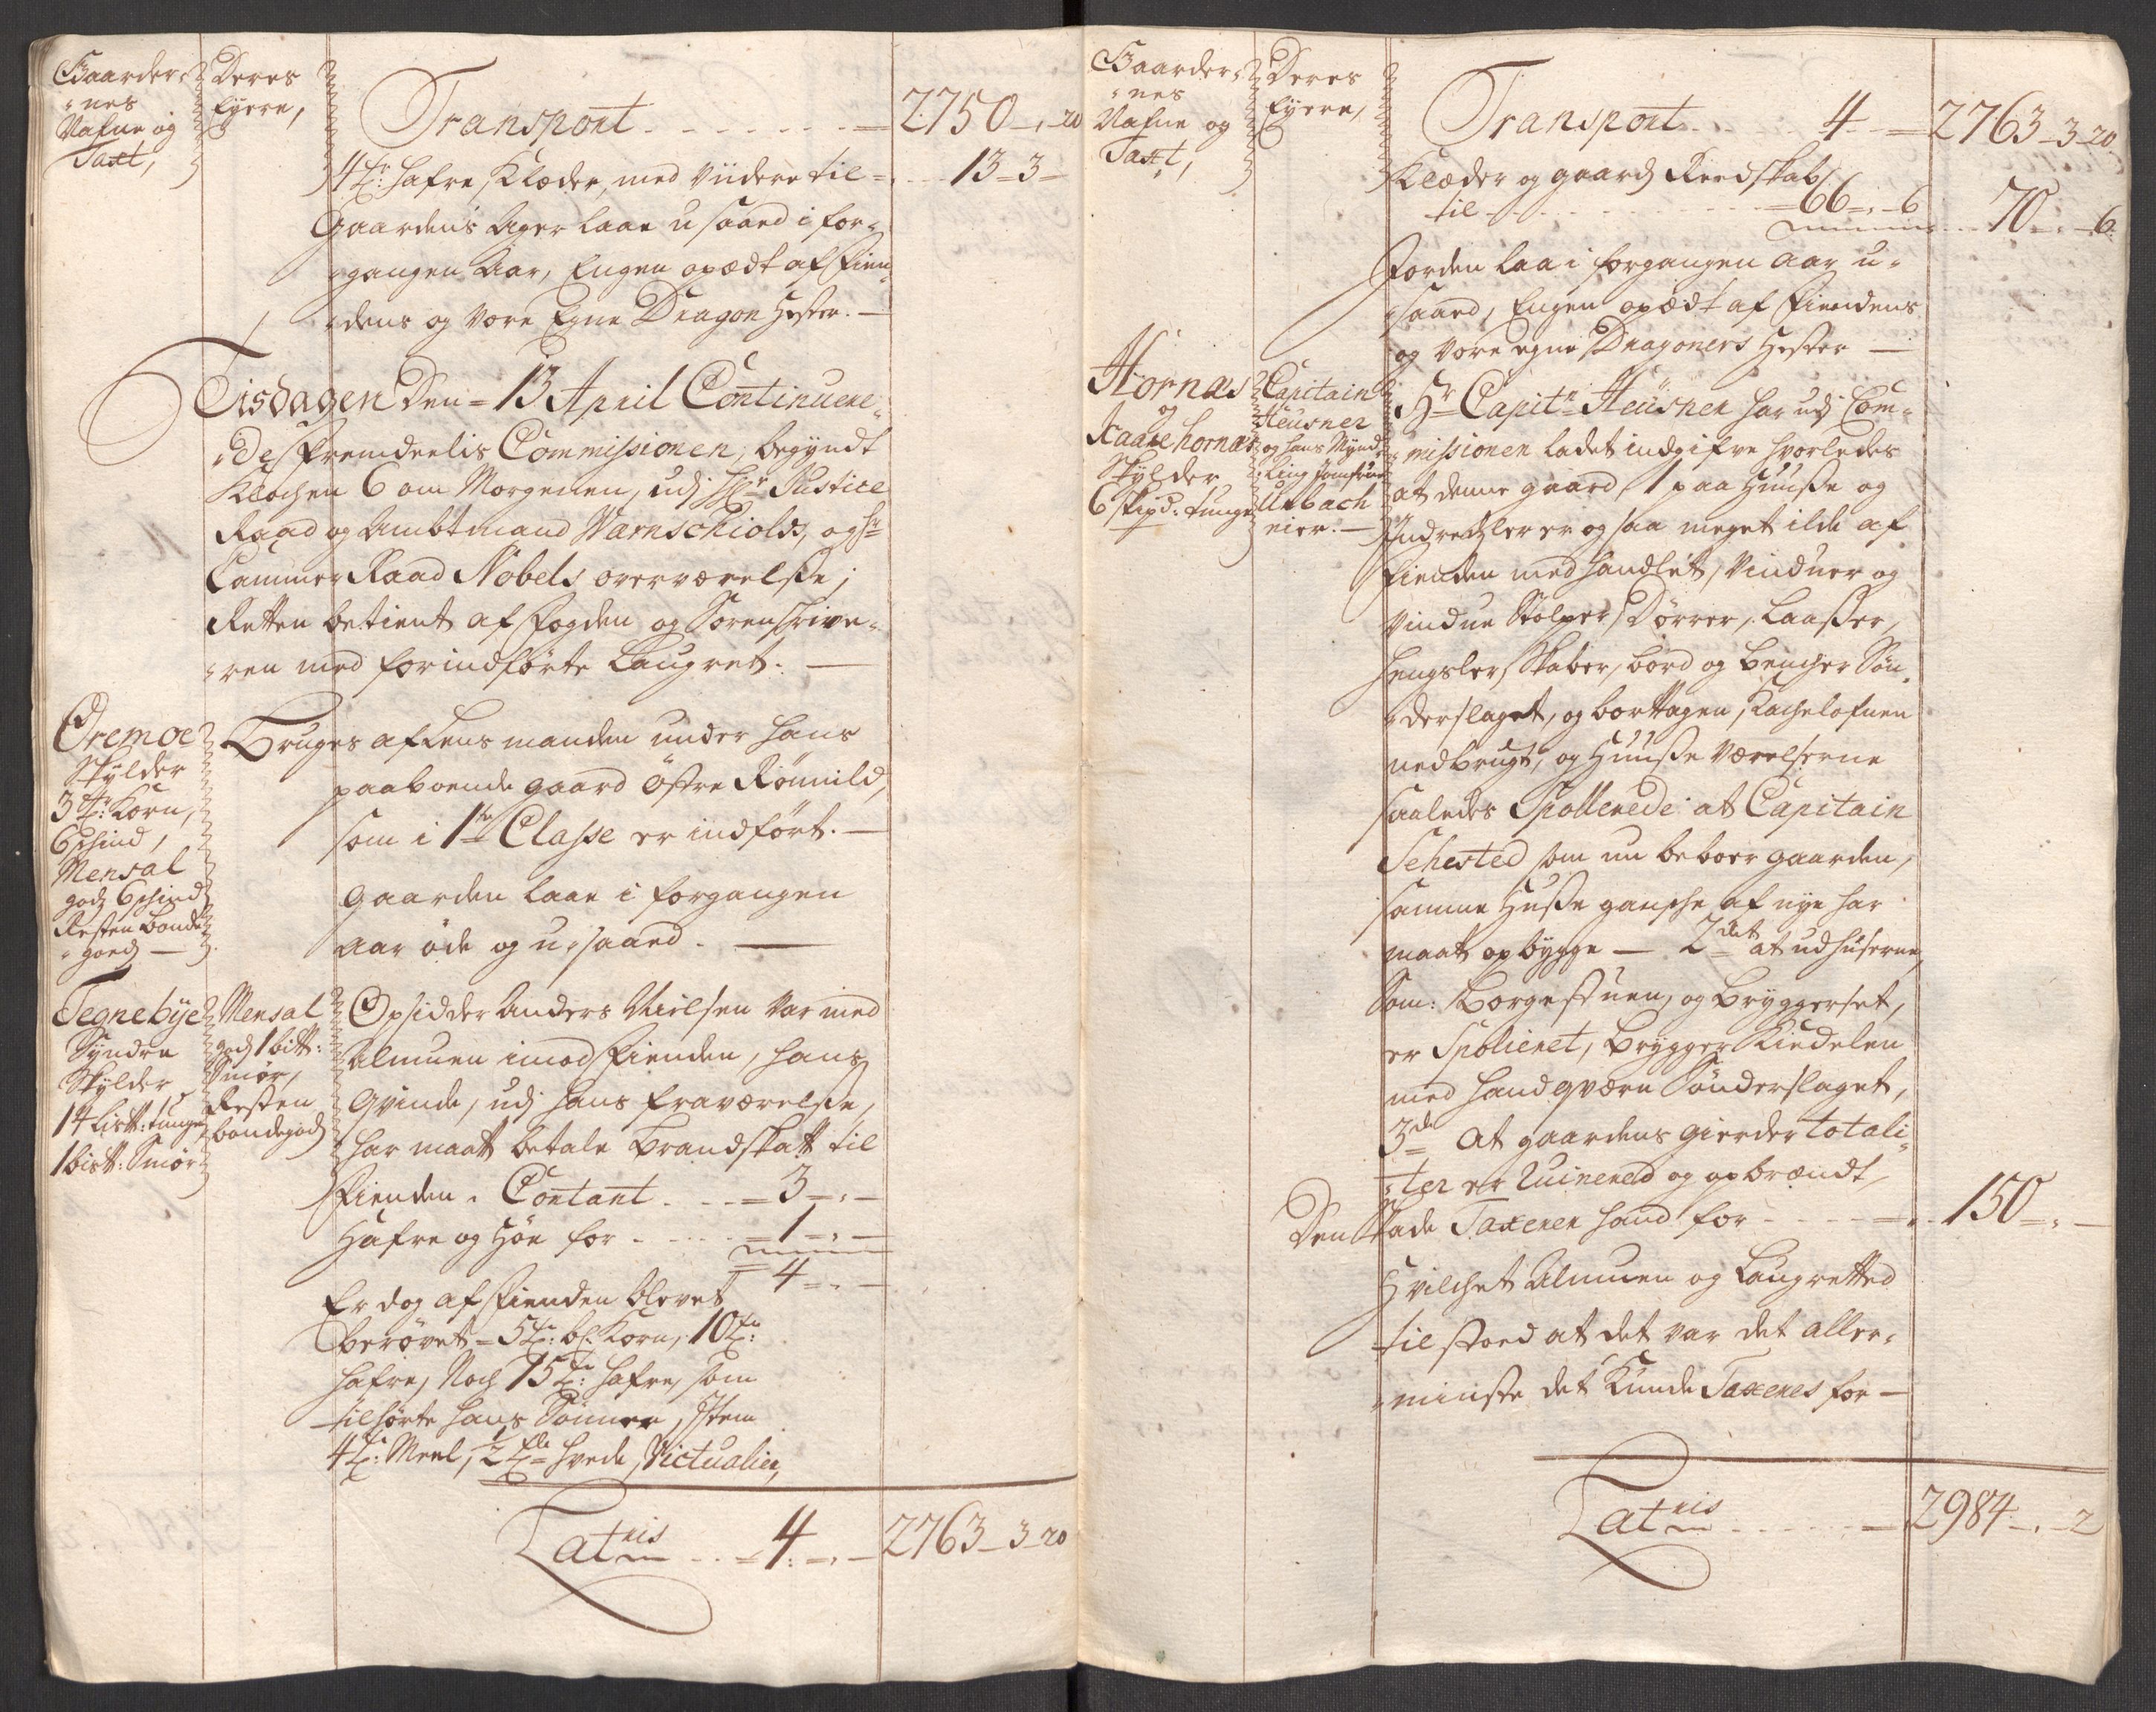 Gaarder-
-nes
Nafne og
Taxt,
Deres
Eyere,
Transport - - - - - - - = 2750 - „ - 20
4 tr: hafre, Klæder, med viidere til = - - 13 - 3 -
Gaardens Ager laae usaaed i for-
-gangen Aar, Engen opædt af fien-
-dens og vore Egne Dragon hester. —
Tisdagen Den = 13 April Continuere-
-de fremdeelis Commissionen, begyndt
Klochen 6 om Morgenen, udj Hr Justice
Raad og Ambtmand Warnschiolds, og Hr
Cammer Raad Nobels overværelsse;
Retten betient af fogden og Sorenskrive-
-ren med forindførte Laugret. —
Oremoe
Skylder
3 tr: Korn,
6 schind,
Mensal
godz 6 schind
Resten bonde
-goedz —
Bruges af Lensmanden under hans
paaboende gaard Østre Rømmild,
som i 1te Classe er indført. —
Gaarden laae i forgangen
Aar øde og u-saaed. —
Tegnebÿe
Syndre
Skylder
14 List: tunge
1 bist: Smør
Mensal
godz 1 bitt:
Smør,
Resten
bondegodz
Opsidder Anders Nielsen var med
Almuen imod fienden, hans
Qvinde, udj hans fraværelsse,
har maatt betale brandskatt til
fienden. Contant - - = 3 - „ -
Hafre og Høe for - - - - = 1 - „ -
= 4 = „ -
Er dog af fienden blevet
berøvet = 5 tr: bl. Korn, 10 tr:
hafre, Noch 15 tr: hafre, som
tilhørte hans Sønner, Item
4 tr: Meel, ½ tde hvede, Victualier,
Latris - - = 4: = „ - 2763 - 3 - 20
Gaarder-
-nes
Nafne og
Taxt,
Deres
Eyere,
Transport - - - - 4 - = 2763 - 3 - 20
Klæder og gaardz Reedskab
til - - - - - - - - - = 66 = „ - 6 - - 70 - „ - 6
Jorden laa i forgangen aar u-
-saaed, Engen opædt af fiendens
og vore egne Dragoners hester —
Hornæs
og
Kaatehornæs
Skylder
6 skipd: tunge
Capitain
Heusner
og hans Mynd-
-ling Jomfrue
Urbach
eier. —
Hr Capitn Heüsner har udj Com-
-missionen ladet indgifve hvorledes
at denne gaard, 1 paa Huusse og
Indredzler er og saa meget ilde af
fienden medhandlet, Vinduer og
vindue Stolper, Dørrer, Laasser,
hengsler, Skaber, bord og bencher Søn-
-derslaget, og borttagen, Kachelofnen
nedbrugt, og Huusse Værelserne
saaledes Spollerede at Capitain
Sehested som nu beboer gaarden,
samme Husse gansche af nye har
maatt opbygge — 2det at udhuserne,
Som: Borgestuen, og bryggerset,
er Spolieret, brygger Kiedelen
med handqværn Sønderslaget,
3de At gaardens gierder totali-
-ter er Ruinered og opbrændt,
Den Skade Taxerer hand for - - - - = „ - 150 = „ -
Hvilchet Almuen og Laugretted
tilstoed at det var det aller-
-minste det Kunde Taxeres for —
Latris - - - - - - = 2984 - „ - 2